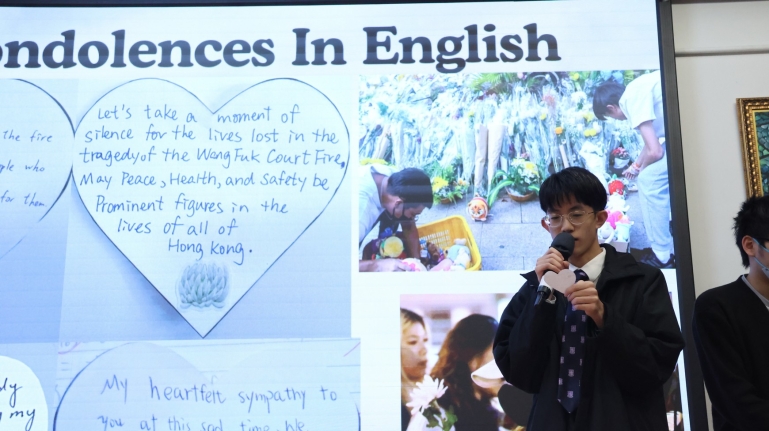 ondolences In English
the fire
ple who
for them
Let's take a moment of
silence for the lives lost in the
tragedy of the Wang Fuk Court Fire,
May Peace, Health, and Safety be
Prominent figures in the
lives of all of
Hong Kong.
my
My heartfelt sympathy to
you at this sad time. We